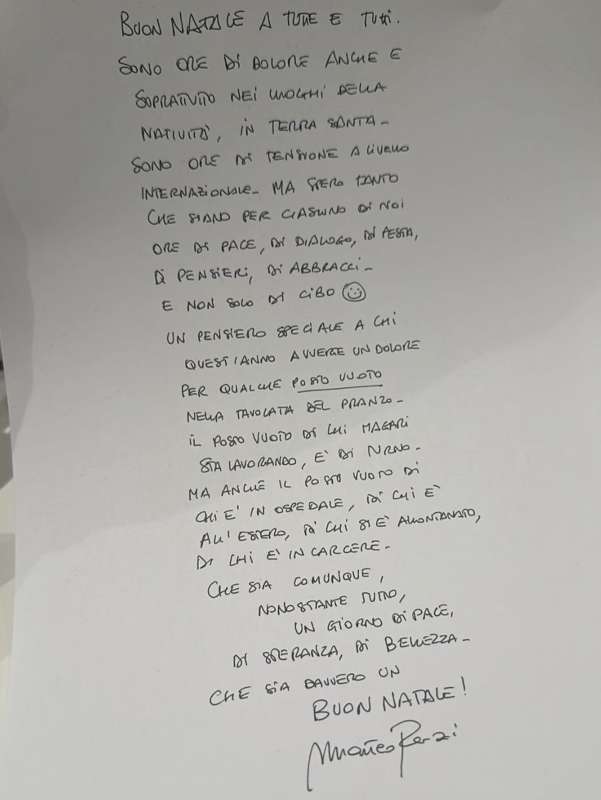 BUON NATALE A TUTTE E TUTTI.
SONO ORE DI DOLORE ANCHE E
SOPRATTUTTO NEI LUOGHI DELLA
NATIVITÀ, IN TERRA SANTA_
SONO ORE DI TENSIONE A LIVELLO
INTERNAZIONALE_ MA SPERO TANTO
CHE SIANO PER CIASCUNO DI NOI
ORE DI PACE, DI DIALOGO, DI FESTA,
DI PENSIERI, DI ABBRACCI_
E NON SOLO DI CIBO ☺
UN PENSIERO SPECIALE A CHI
QUEST'ANNO AVVERTE UN DOLORE
PER QUALCHE POSTO VUOTO
NELLA TAVOLATA DEL PRANZO_
IL POSTO VUOTO DI CHI MAGARI
STA LAVORANDO, E' DI TURNO_
MA ANCHE IL POSTO VUOTO DI
CHI E' IN OSPEDALE, DI CHI E'
ALL'ESTERO, DI CHI SI E' ALLONTANATO,
DI CHI E' IN CARCERE_
CHE SIA COMUNQUE,
NONOSTANTE TUTTO,
UN GIORNO DI PACE,
DI SPERANZA, DI BELLEZZA_
CHE SIA DAVVERO UN
BUON NATALE!
Matteo Renzi